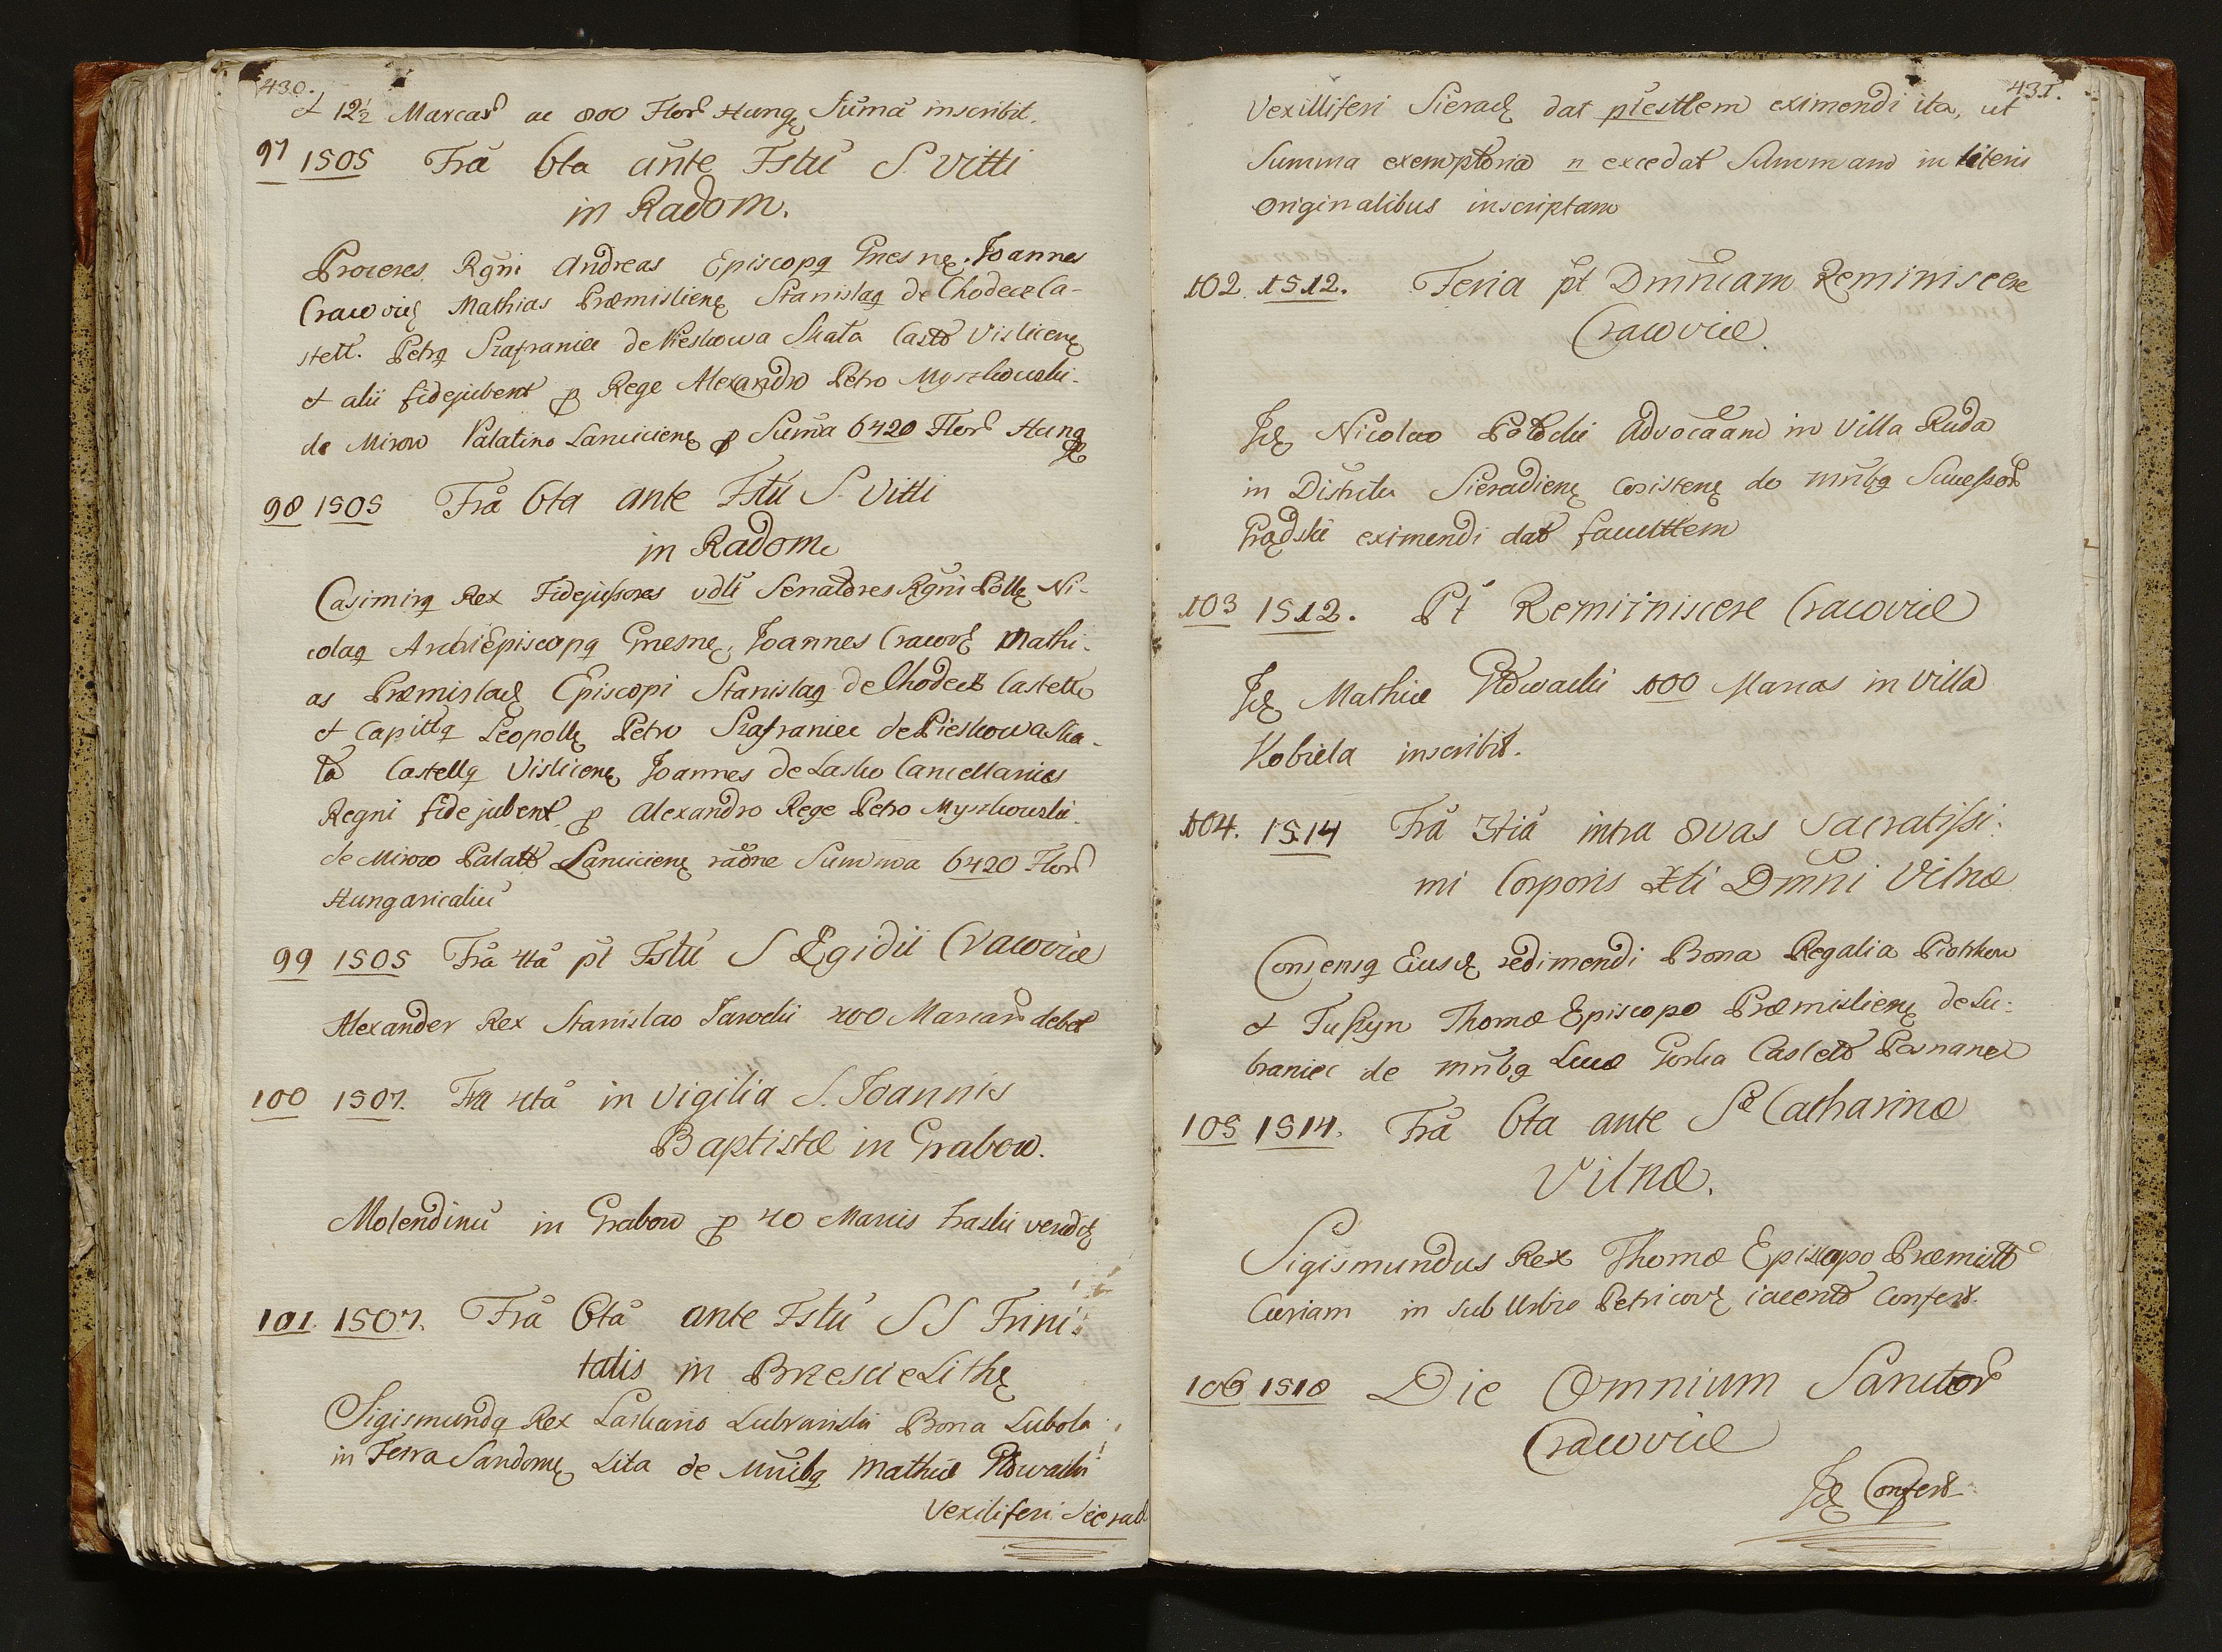 430.
& 12½ Marcar ac 800 Flor Hung Sūmā inscribit.
97 1505 Frā 6ta ānte Fstū S. Vitti
in Radom.
Proceres Rgni Andreas Episcopq Gnesnę. Joannes
Cracovię Mathias Præmislienę Stanislaq de Chodecz Ca-
stell. Petrq Szafraniec de Pieskowa Skała Castto Vislicenę
& alii fidejubent p Rege Alexandro Petro Myszkowski.
de Mirow Palatino Lanciciene p Sūma 6420 Flor Hung
98 1505 Frā 6ta ante Fstū S. Vitti
in Radom
Casimirq Rex Fidejussores vdlt Senatores Rgni Pollę Ni-
colaq ArchiEpiscopq Gnesnę, Joannes Cracovę Mathi-
as Præmislaę Episcopi Stanislaq de Chodecz Castell
& Capittq Leopollę Petro Szafraniec de Pieskowa Ska-
ła Castellq Vislicenę Joannes de Lasko Cancellarius
Regni fidejubent p Alexandro Rege Petro Myszkowski.
de Mirow Palatto Lancicienę rāone Summa 6420 Flor
Hungaricaliū
99 1505 Frā 4tā pt Fstū S Ægidii Cracoviæ
Alexander Rex Stanislao Jarocki 400 Marcar debet
100 1507. Fra 4tā in vigilia S. Joannis
Baptistæ in Grabow.
Molendinū in Grabow p 40 Marcis Fraski vendit
101. 1507. Frā 6tā ante Fstū SS Trini-
tatis in Brzescie Lithę
Sigismundq Rex Laskario Lubranski Bona Lubola
in Terra Sandomę Sita de Mnibq Mathiæ Płowacki
Vexiliferi Sierad
431.
Vexilliferi Sieradę dat ptestlem eximendi ita, ut
Summa exemptoria n excedat Summam in literis
Originalibus inscriptam
102. 1512. Feria pt Dmnicam Reminiscere
Cracoviæ.
Idę Nicolao Potocki Advocāam in Villa Ruda
in Distritu Sieradienę Consistenę de mnibq Sucessor
Prądski eximendi dat facultem
103 1512. Pt Reminiscere Cracoviæ
Idę Mathiæ Płowacki 100 Marcas in Villa
Kobiela inscribit.
104. 1514 Frā 3tiā intra 8vas Sacratissi-
mi Corporis Xti Dmni Vilnæ
Consensq Eiusdę redimendi Bona Regalia Piotrkow
& Tuszyn Thomæ Episcopo Præmislienę de Lu-
braniec de mnibq Lucæ Gorka Castell Posnanę
105 1514. Frā 6ta ante Sæ Catharinæ
Vilnæ.
Sigismundus Rex Thomæ Episcopo Præmisll
Curiam in sub Urbio Petricovę iacent Confert.
106 1518 Die Omnium Sanctor
Cracoviæ
Idę Confert